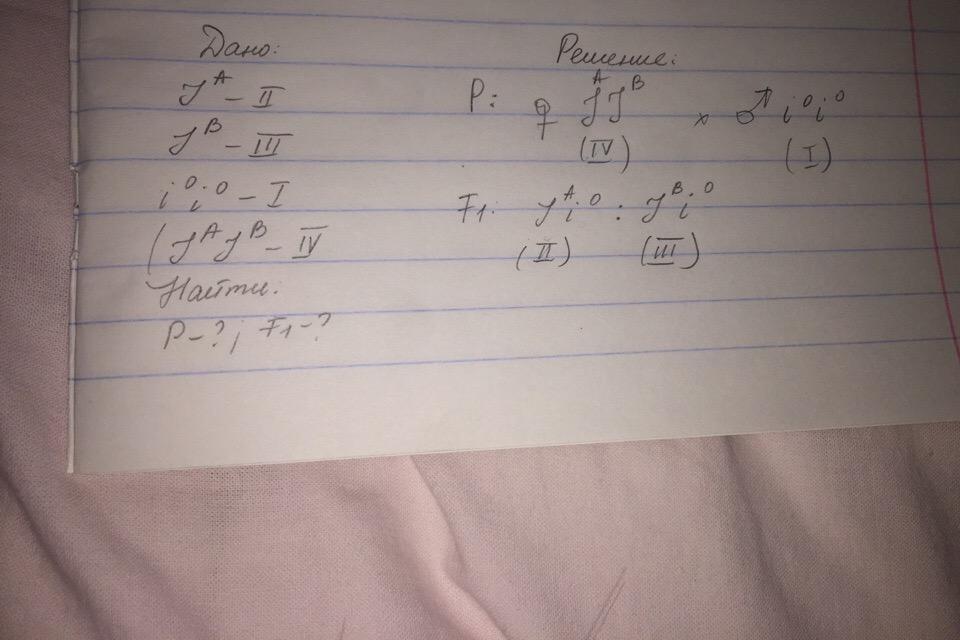 Дано:
J^A – II
J^B – III
i^o i^o – I
(J^A J^B – IV
Найти:
P – ?; F1 – ?
Решение:
P: ♀ J^A J^B × ♂ i^o i^o
(IV) (I)
F1: J^A i^o : J^B i^o
(II) (III)